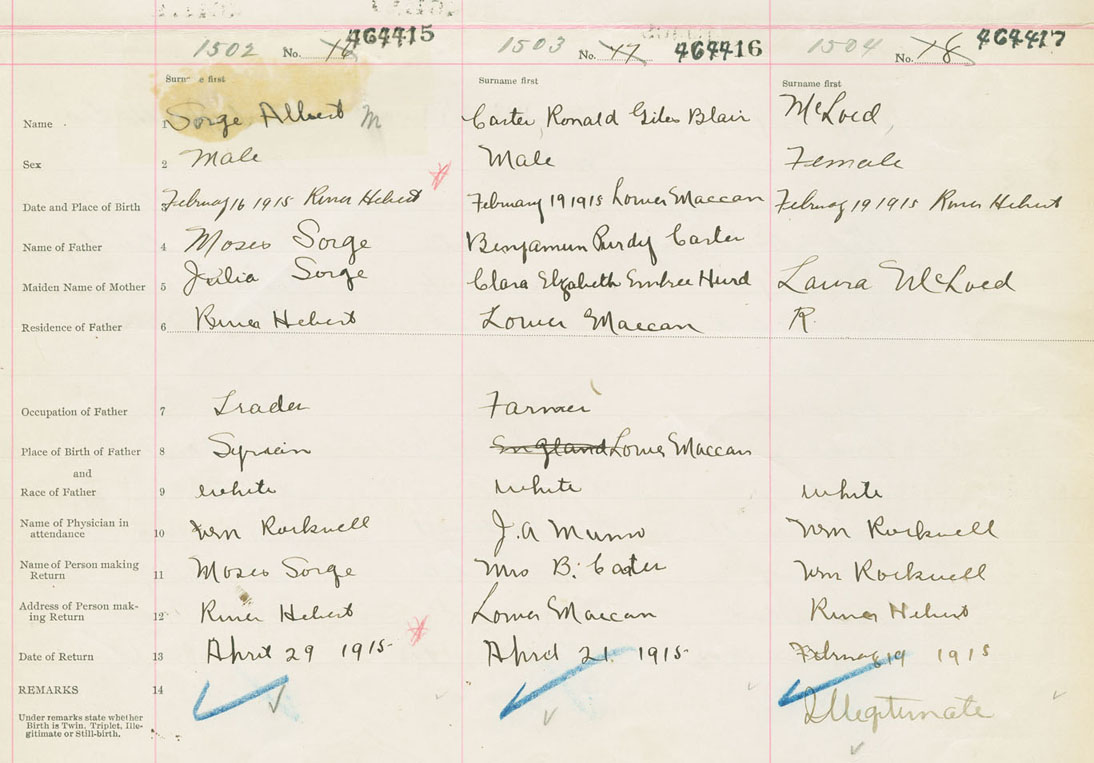 1502 No. 76 464415 1503 No. 77 464416 1504 No. 78 464417
Surname first Surname first Surname first
Name 1 Sorge Albert M Carter, Ronald Giles Blair McLoed
Sex 2 Male Male Female
Date and Place of Birth 3 February 16 1915 River Hebert February 19 1915 Lower Maccan February 19 1915 River Hebert
Name of Father 4 Moses Sorge Benjamin Purdy Carter
Maiden Name of Mother 5 Julia Sorge Clara Elizabeth Embree Hurd Laura McLoed
Residence of Father 6 River Hebert Lower Maccan R.
Occupation of Father 7 Trader Farmer
Place of Birth of Father 8 Syrian England Lower Maccan
and
Race of Father 9 white white white
Name of Physician in
attendance 10 Wm Rockwell J.A Munro Wm Rockwell
Name of Person making
Return 11 Moses Sorge Mrs B. Carter Wm Rockwell
Address of Person mak-
ing Return 12 River Hebert Lower Maccan River Hebert
Date of Return 13 April 29 1915 April 21 1915 February 19 1915
REMARKS 14 Illegitimate
Under remarks state whether
Birth is Twin, Triplet, Ille-
gitimate or Still-birth.